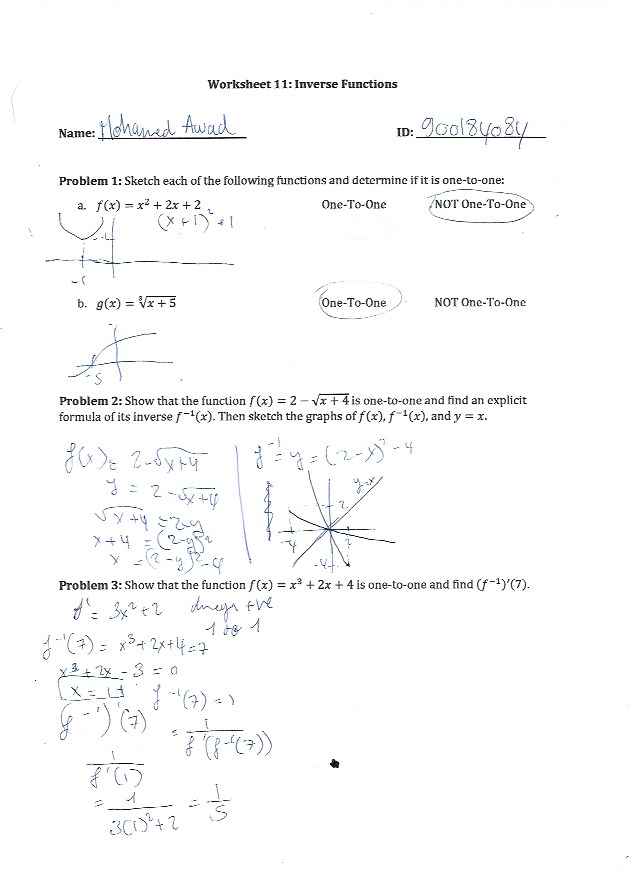 Worksheet 11: Inverse Functions
Name: Mohamed Awad ID: 900184084
Problem 1: Sketch each of the following functions and determine if it is one-to-one:
a. f(x) = x² + 2x + 2 One-To-One NOT One-To-One
(x+1)²+1
b. g(x) = ⁵√x + 5 One-To-One NOT One-To-One
-5
Problem 2: Show that the function f(x) = 2 − √x + 4 is one-to-one and find an explicit
formula of its inverse f⁻¹(x). Then sketch the graphs of f(x), f⁻¹(x), and y = x.
f(x) = 2-√x+4
y = 2-√x+4
√x+4 = 2-y
x+4 = (2-y)²
x = (2-y)²-4
f⁻¹ = y = (2-x)²-4
y=x
2
-4 2
-4
Problem 3: Show that the function f(x) = x³ + 2x + 4 is one-to-one and find (f⁻¹)′(7).
f' = 3x²+2 always +ve
1 to 1
f⁻¹(7) = x³+2x+4=7
x³+2x-3=0
x=1 f⁻¹(7)=1
(f⁻¹)'(7) = 1/f'(f⁻¹(7))
1/f'(1)
= 1/3(1)²+2 = 1/5